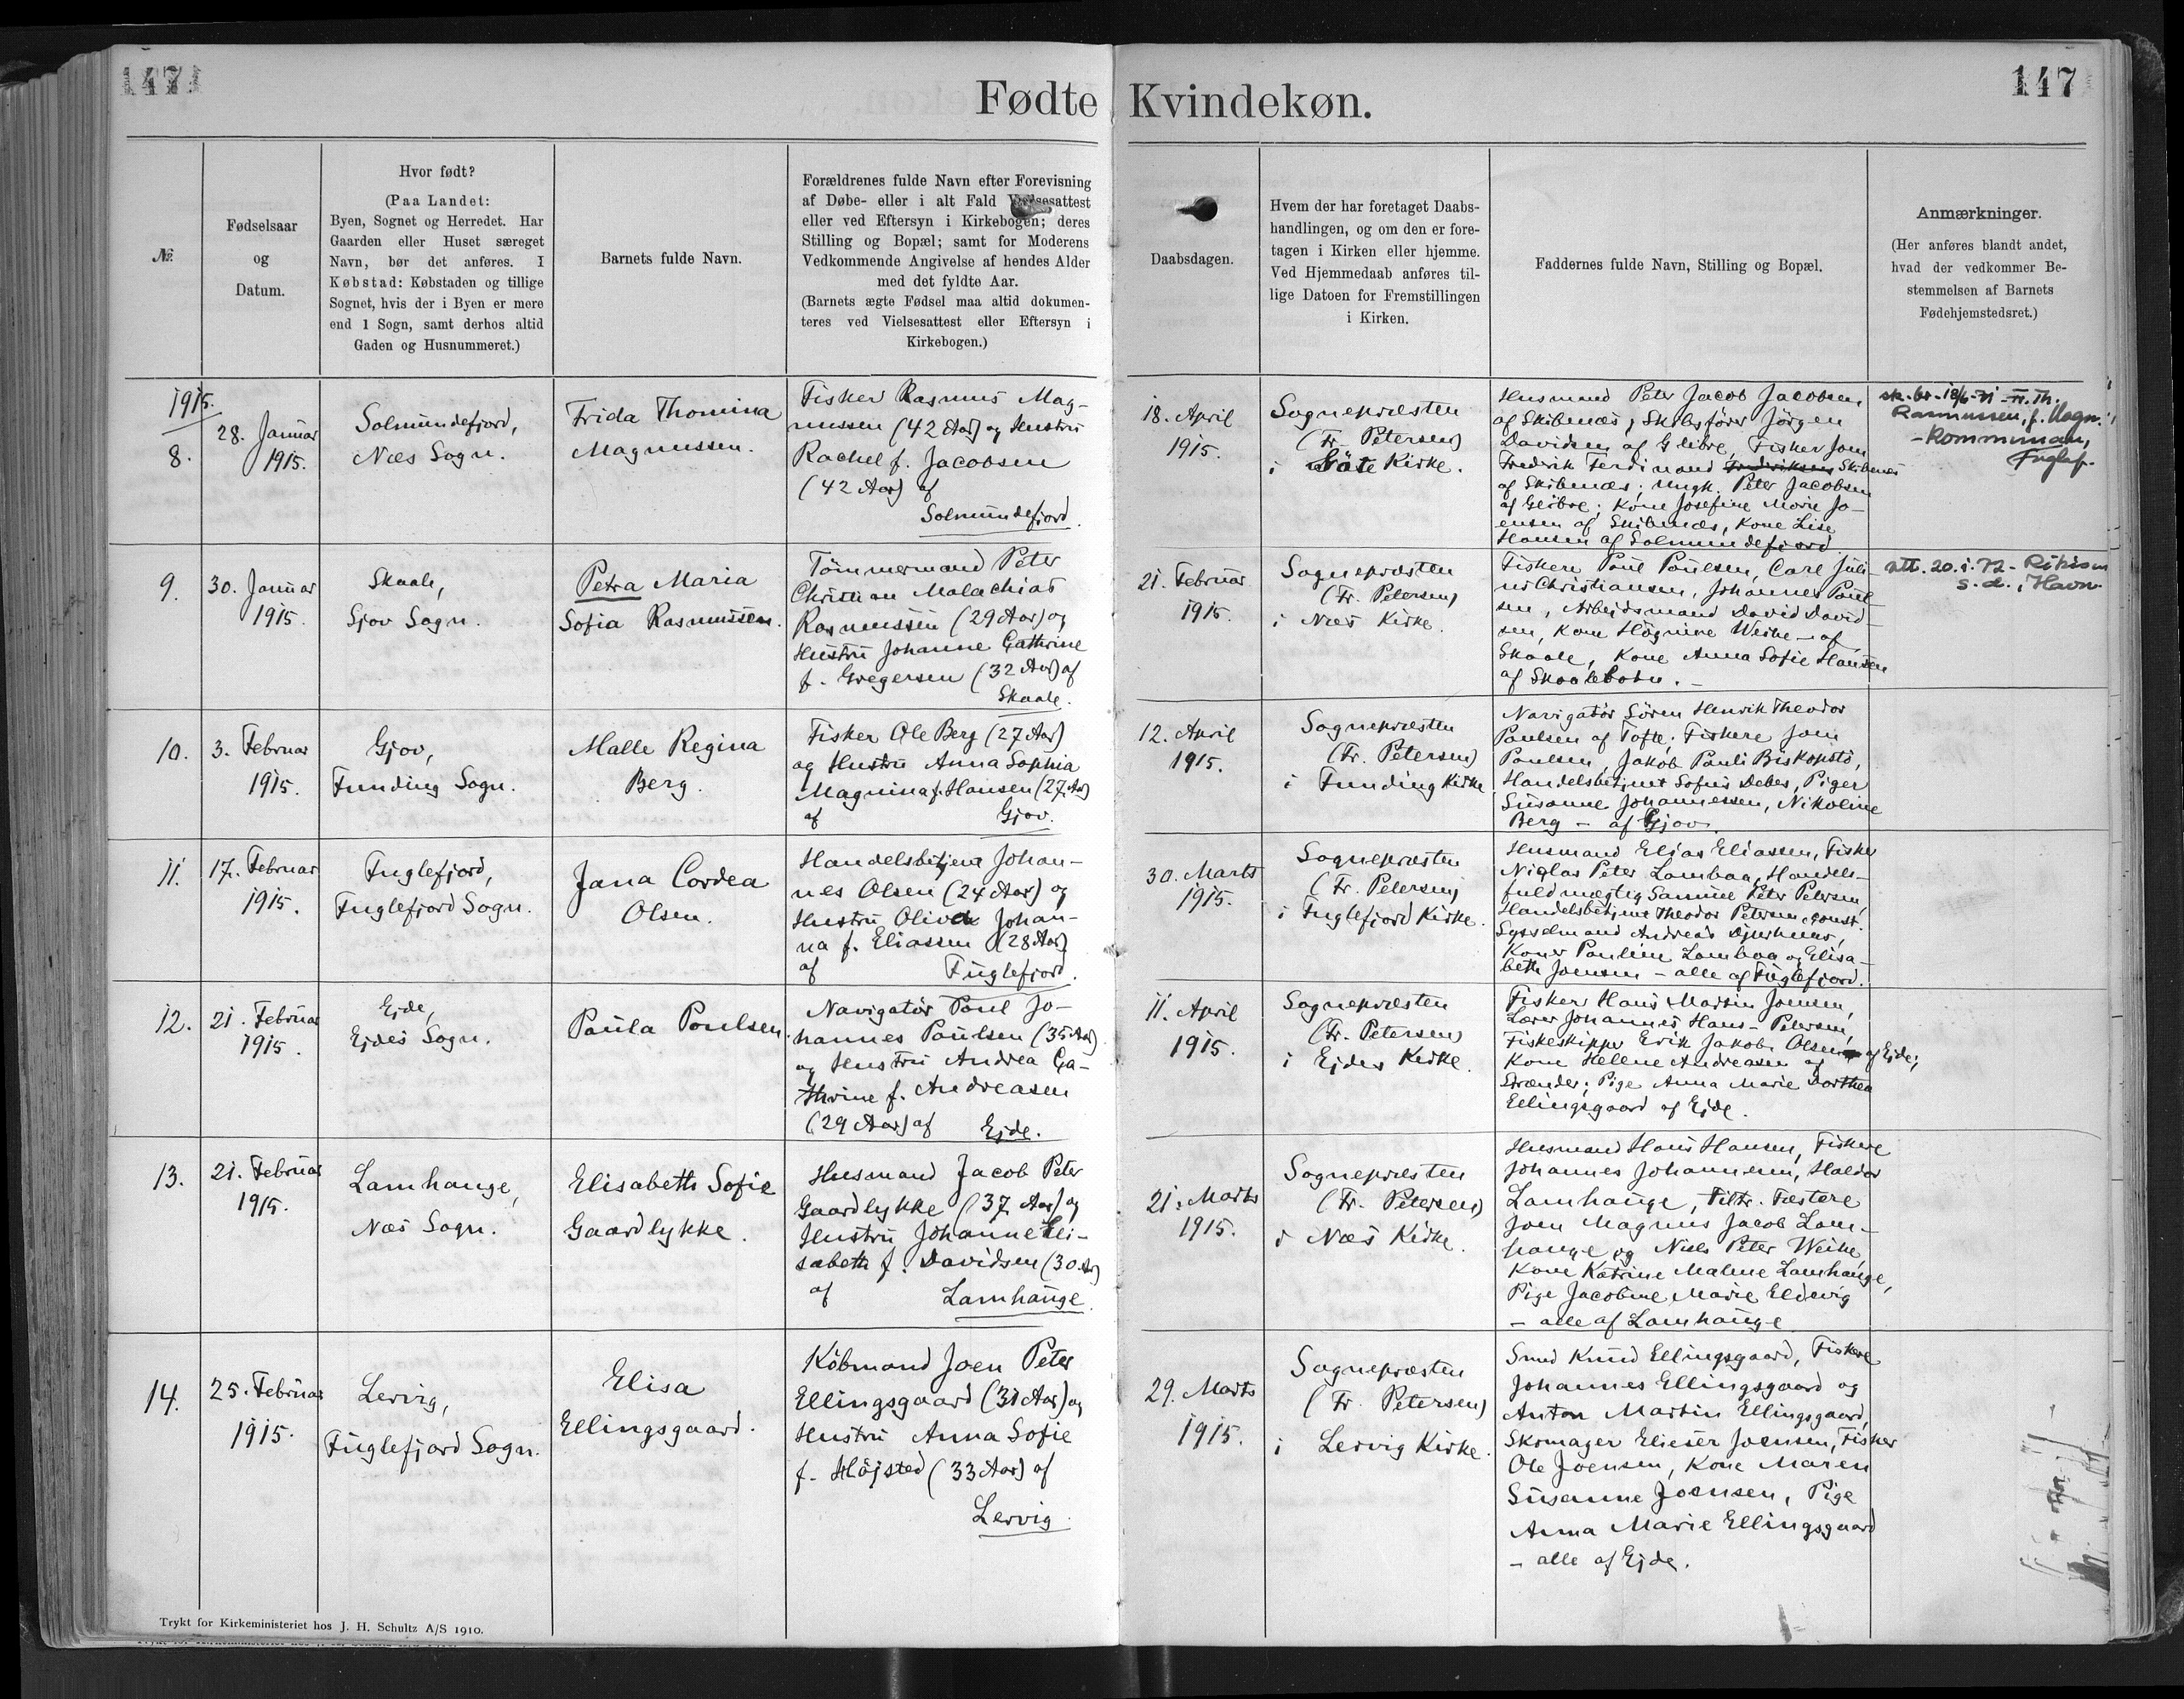 147
147
Fødte Kvindekøn.
№
Fødselsaar
og
Datum.
Hvor født?
(Paa Landet:
Byen, Sognet og Herredet. Har
Gaarden eller Huset særeget
Navn, bør det anføres. I
Købstad: Købstaden og tillige
Sognet, hvis der i Byen er mere
end 1 Sogn, samt derhos altid
Gaden og Husnummeret.)
Barnets fulde Navn.
Forældrenes fulde Navn efter Forevisning
af Døbe- eller i alt Fald Vielsesattest
eller ved Eftersyn i Kirkebogen; deres
Stilling og Bopæl; samt for Moderens
Vedkommende Angivelse af hendes Alder
med det fyldte Aar.
(Barnets ægte Fødsel maa altid dokumen-
teres ved Vielsesattest eller Eftersyn i
Kirkebogen.)
Daabsdagen.
Hvem der har foretaget Daabs-
handlingen, og om den er fore-
tagen i Kirken eller hjemme.
Ved Hjemmedaab anføres til-
lige Datoen for Fremstillingen
i Kirken.
Faddernes fulde Navn, Stilling og Bopæl.
Anmærkninger.
(Her anføres blandt andet,
hvad der vedkommer Be-
stemmelsen af Barnets
Fødehjemstedsret.)
1915.
8.
28. Januar
1915.
Solmundefjord,
Næs Sogn.
Frida Thomina
Magnussen.
Fisker Rasmus Mag-
nussen (42 Aar) og Hustru
Rachel f. Jacobsen
(42 Aar) af
Solmundefjord.
18. April
1915.
Sognepræsten
(Fr. Petersen)
i Göte Kirke.
Husmand Peter Jacob Jacobsen
af Skibenæs; Skibsfører Jörgen
Davidsen af Glibre, Fisker Joen
Frederik Ferdinand Frederiksen Skibenæs
af Skibenæs; Ungk. Peter Jacobsen
af Glibre; Kone Josefine Marie Jo-
ensen af Skibenæs, Kone Lise
Hansen af Solmundefjord
sk. br. 18/6-71 -
Rasmussen, f. Magn.
-kommunan,
Fuglef.
9.
30. Januar
1915.
Skaale,
Gjov Sogn.
Petra Maria
Sofia Rasmussen.
Tömmermand Peter
Christian Malachias
Rasmussen (29 Aar) og
Hustru Johanne Cathrine
f. Gregersen (32 Aar) af
Skaale.
21. Februar
1915.
Sognepræsten
(Fr. Petersen)
i Næs Kirke.
Fiskere Poul Poulsen, Carl Juli-
us Christiansen, Johannes Poul-
sen, Arbejdsmand David David-
sen, Kone Högnine Weihe - af
Skaale, Kone Anna Sofie Hansen
af Skaalebotn. -
att. 20.1.72 -
s.d. i Havn
10.
3. Februar
1915.
Gjov,
Funding Sogn.
Malle Regina
Berg.
Fisker Ole Berg (27 Aar)
og Hustru Anna Sophia
Magnina f. Hansen (27 Aar)
af Gjov.
12. April
1915.
Sognepræsten
(Fr. Petersen)
i Funding Kirke
Navigatör Sören Henrik Theodor
Poulsen af Tofte; Fiskere Joen
Poulsen, Jakob Pauli Biskopstö,
Handelsbetjent Sofus Debes, Piger
Susanne Johannessen, Nikoline
Berg - af Gjov.
11.
17. Februar
1915.
Fuglefjord,
Fuglefjord Sogn.
Jana Cordea
Olsen.
Handelsbetjent Johan-
nes Olsen (24 Aar) og
Hustru Oliva Johan-
na f. Eliassen (28 Aar)
af Fuglefjord.
30. Marts
1915.
Sognepræsten
(Fr. Petersen)
i Fuglefjord Kirke.
Husmand Elias Eliassen, Fisker
Niclas Peter Lambaa, Handels-
fuldmægtig Samuel Peter Petersen,
Handelsbetjent Theodor Petersen, const.
Sysselmand Andreas Djurhuus,
Koner Pauline Lambaa og Elisa-
beth Joensen - alle af Fuglefjord.
12.
21. Februar
1915.
Ejde,
Ejdes Sogn.
Paula Poulsen.
Navigatör Poul Jo-
hannes Poulsen (35 Aar)
og Hustru Andrea Ca-
thrine f. Andreasen
(29 Aar) af Ejde.
11. April
1915.
Sognepræsten
(Fr. Petersen)
i Ejdes Kirke.
Fisker Hans Martin Joensen,
Lærer Johannes Hans- Petersen,
Fiskeskipper Erik Jakob Olsen af Ejde;
Kone Helene Andreasen af
Strænder; Pige Anna Marie Dorthea
Ellingsgaard af Ejde.
13.
21. Februar
1915.
Lamhauge,
Næs Sogn.
Elisabeth Sofie
Gaardlykke.
Husmand Jacob Peter
Gaardlykke (37 Aar) og
Hustru Johanne Eli-
sabeth f. Davidsen (30 Aar)
af Lamhauge.
21. Marts
1915.
Sognepræsten
(Fr. Petersen)
i Næs Kirke.
Husmand Hans Hansen, Fiskere
Johannes Johannesen, Haldor
Lamhauge, Tiltr. Fæstere
Joen Magnus Jacob Lam-
hauge og Niels Peter Weihe,
Kone Katrine Malene Lamhauge,
Pige Jacobine Marie Eldevig
- alle af Lamhauge
14.
25. Februar
1915.
Lervig,
Fuglefjord Sogn.
Elisa
Ellingsgaard.
Köbmand Joen Peter
Ellingsgaard (31 Aar) og
Hustru Anna Sofie
f. Höjsted (33 Aar) af
Lervig.
29. Marts
1915.
Sognepræsten
(Fr. Petersen)
i Lervig Kirke.
Smed Knud Ellingsgaard, Fiskere
Johannes Ellingsgaard og
Anton Martin Ellingsgaard,
Skomager Elieser Joensen, Fisker
Ole Joensen, Kone Maren
Susanne Joensen, Pige
Anna Marie Ellingsgaard
- alle af Ejde.
Trykt for Kirkeministeriet hos J. H. Schultz A/S 1910.